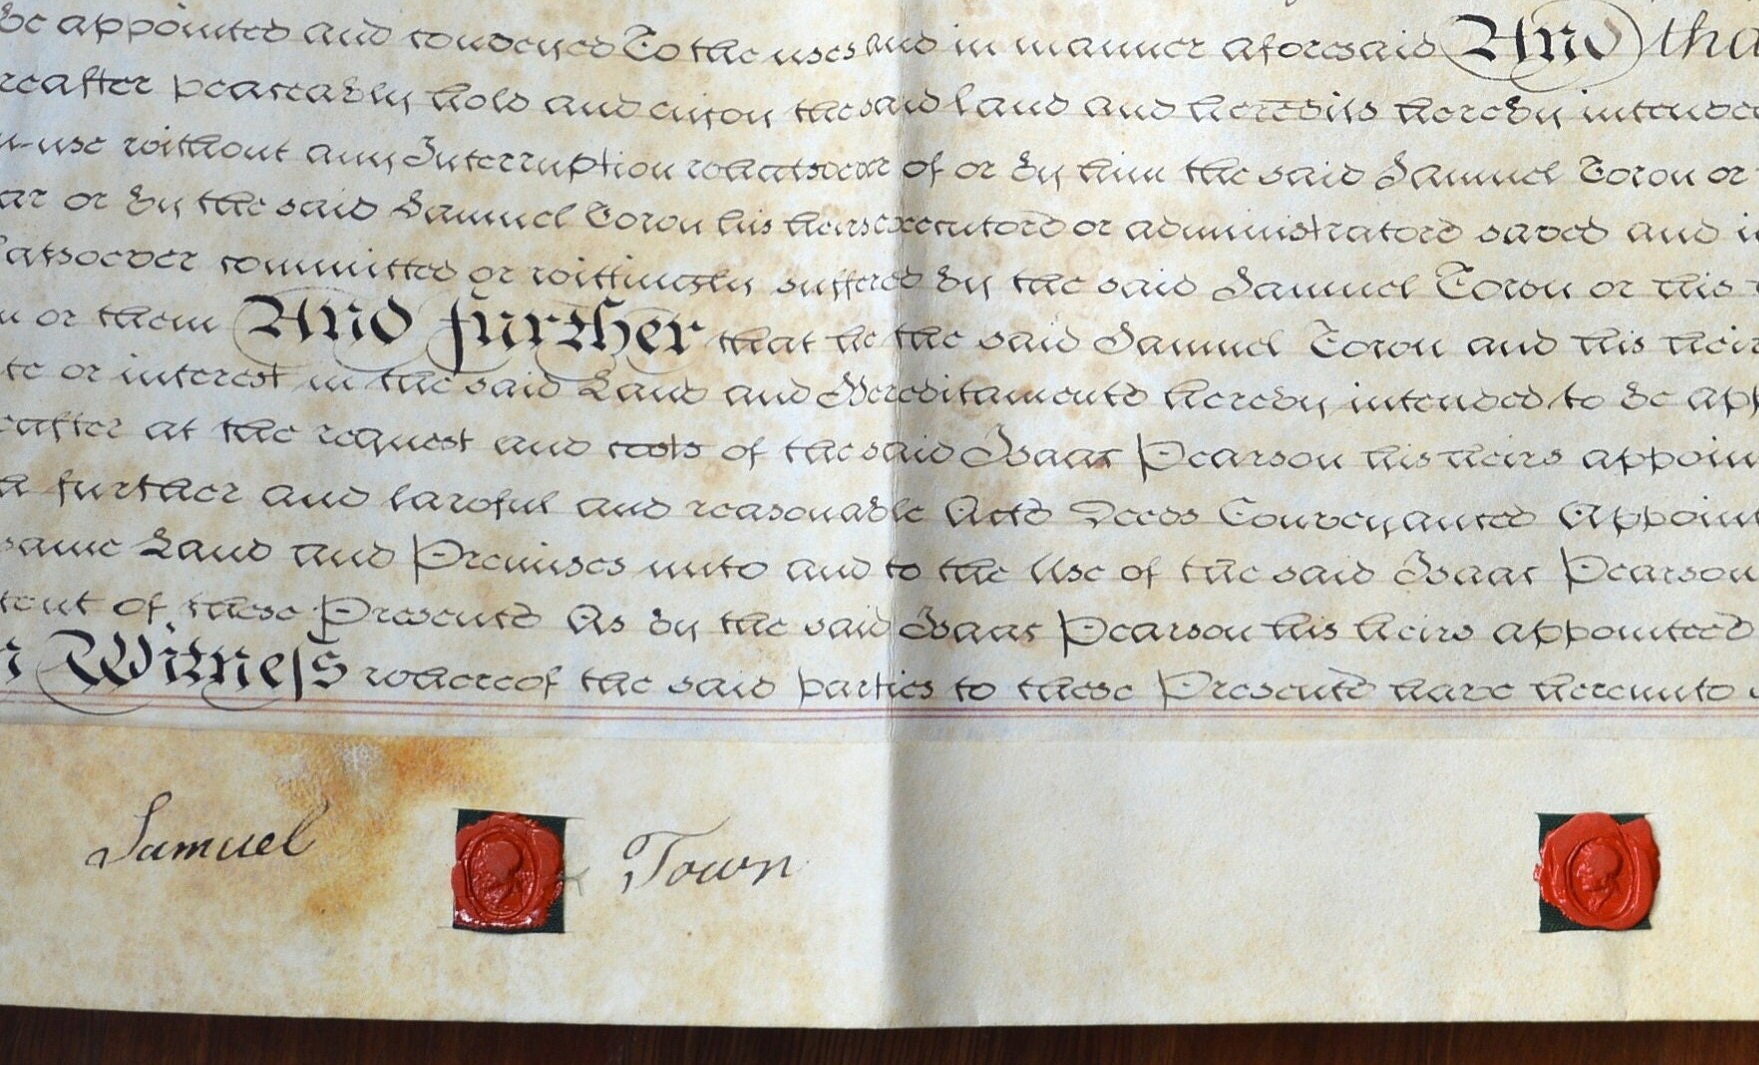 be appointed and conveyed To the uses and in manner aforesaid And tha
reafter peaceably hold and enjoy the said land and heredits hereby intende
use without any Interruption whatsoever of or by him the said Samuel Town or
or by the said Samuel Town his heirs executors or administrators saved and
atsoever committed or wittingly suffered by the said Samuel Town or his
or them And further that he the said Samuel Town and his heir
te or interest in the said Land and Hereditaments hereby intended to be app
eafter at the request and costs of the said Isaac Pearson his heirs appoin
further and lawful and reasonable Acts Deeds Conveyances Appoin
same Land and Premises unto and to the Use of the said Isaac Pearson
tent of these Presents As by the said Isaac Pearson his heirs appointed
n Witness whereof the said parties to these Presents have hereunto
Samuel Town